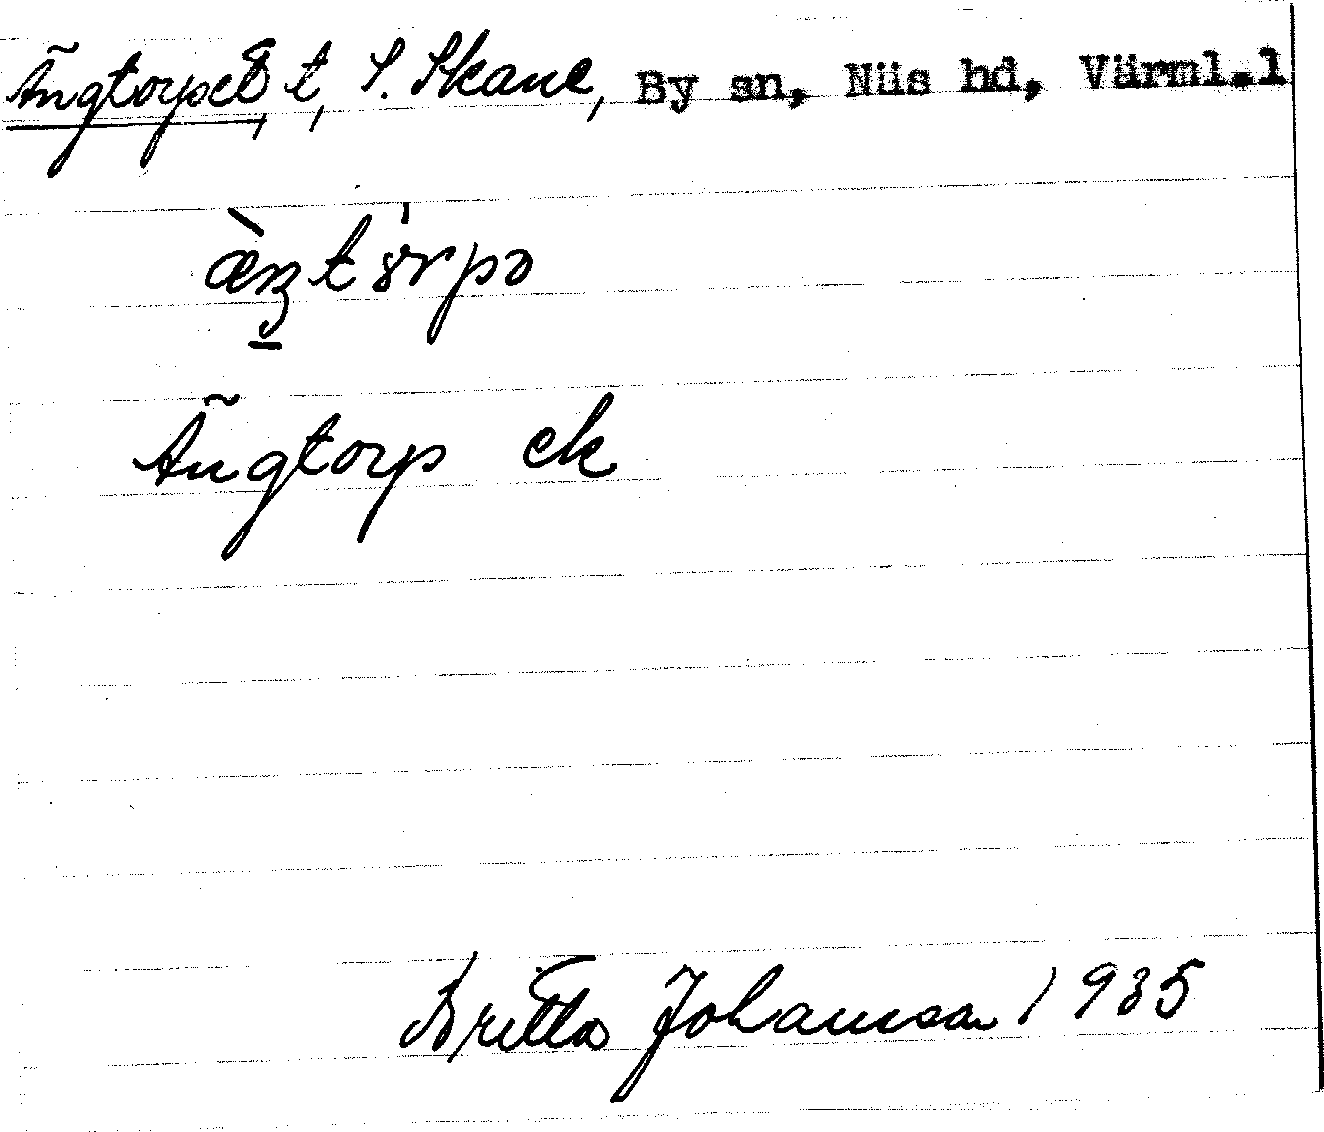 Ängtorpet, t, S. Skane, By sn, Näs hd, Värml.l
Ängtorp ek
Britta Johansson 1935